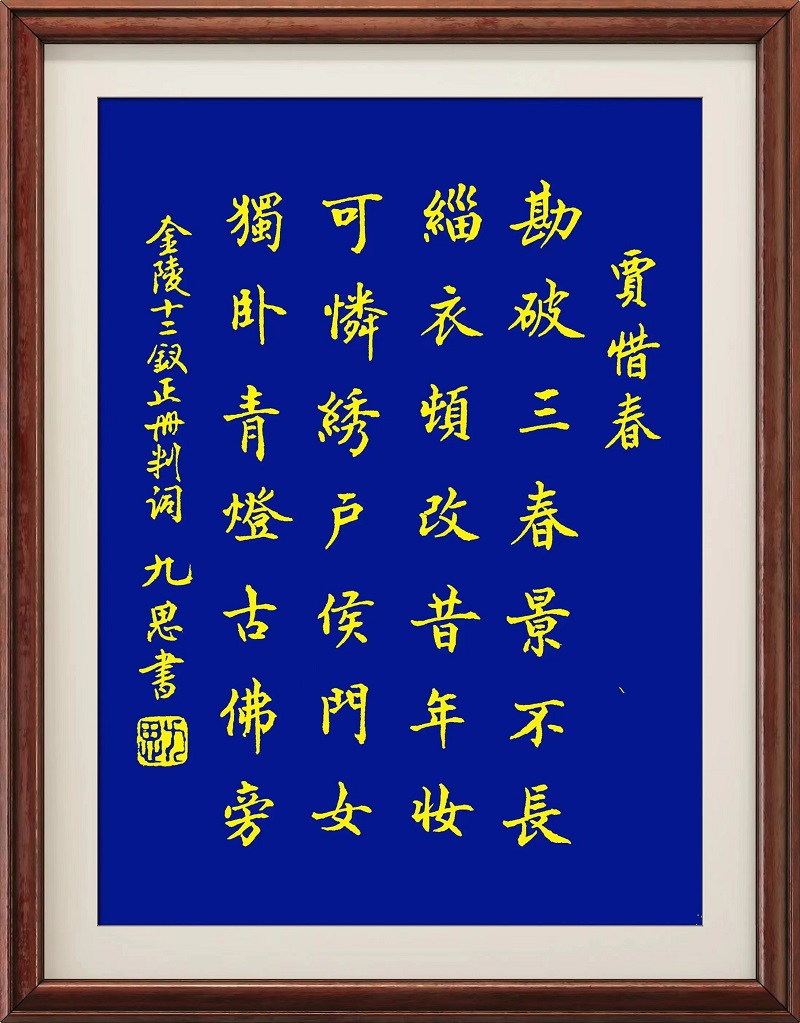 賈惜春
勘破三春景不長
緇衣頓改昔年妝
可憐綉戶侯門女
獨卧青燈古佛旁
金陵十二釵正册判词 九思書
九思